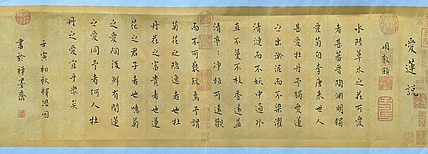 愛蓮説
周敦頤
水陸草木之花可愛
者甚蕃晉陶淵明獨
愛菊自李唐來世人
甚愛牡丹予獨愛蓮
之出淤泥而不染濯
清漣而不妖中通外
直不蔓不枝香遠益
清亭亭淨植可遠觀
而不可褻玩焉予謂
菊花之隱逸者也牡
丹花之富貴者也蓮
花之君子者也噫菊
之愛陶後鮮有聞蓮
之愛同予者何人牡
丹之愛宜乎眾矣
壬寅初秋
書於